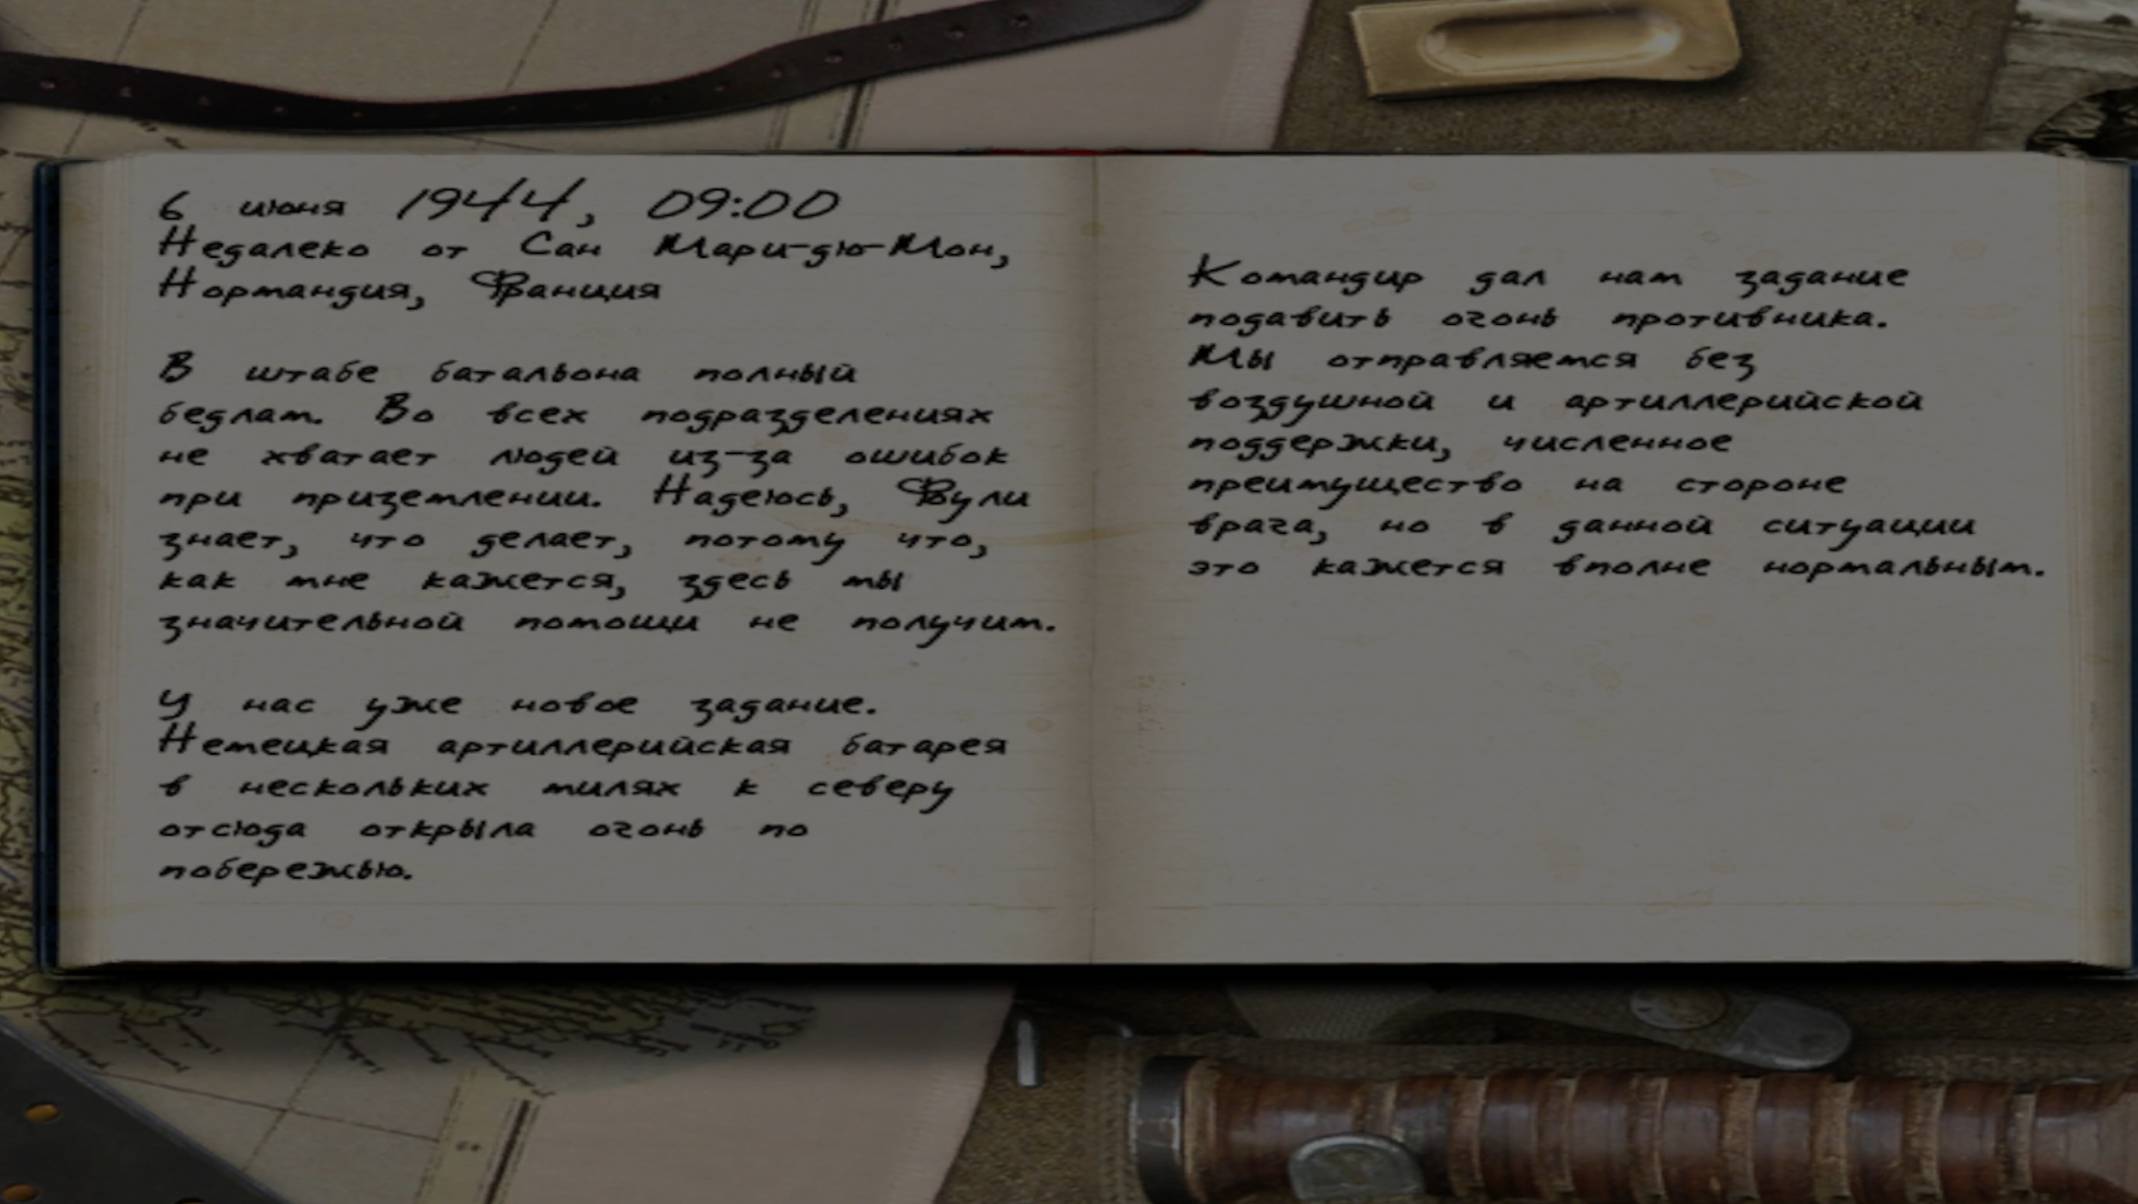 6 июня 1944, 09:00
Недалеко от Сан Мари-дю-Мон,
Нормандия, Франция
В штабе батальона полный
бедлам. Во всех подразделениях
не хватает людей из-за ошибок
при приземлении. Надеюсь, Фули
знает, что делает, потому что,
как мне кажется, здесь мы
значительной помощи не получим.
У нас уже новое задание.
Немецкая артиллерийская батарея
в нескольких милях к северу
отсюда открыла огонь по
побережью.
Командир дал нам задание
подавить огонь противника.
Мы отправляемся без
воздушной и артиллерийской
поддержки, численное
преимущество на стороне
врага, но в данной ситуации
это кажется вполне нормальным.